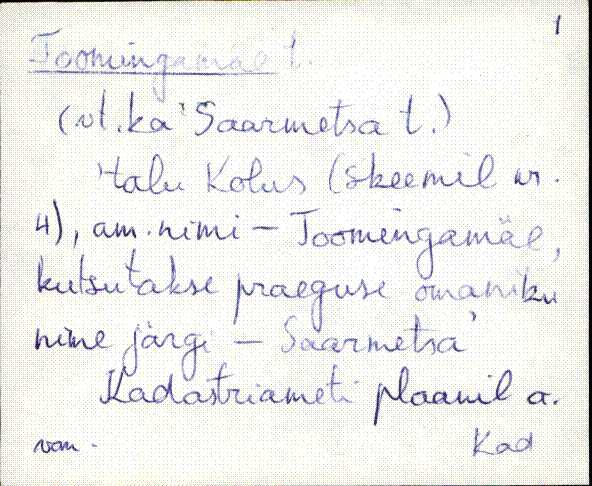 1
Toomingamäe t.
(vt. ka Saarmetsa t.)
'talu Kolus (skeemil nr.
4), am. nimi – Toomingamäe,
kutsutakse praeguse omaniku
nime järgi – Saarmetsa'
Kadastriameti plaanil a.
Kad